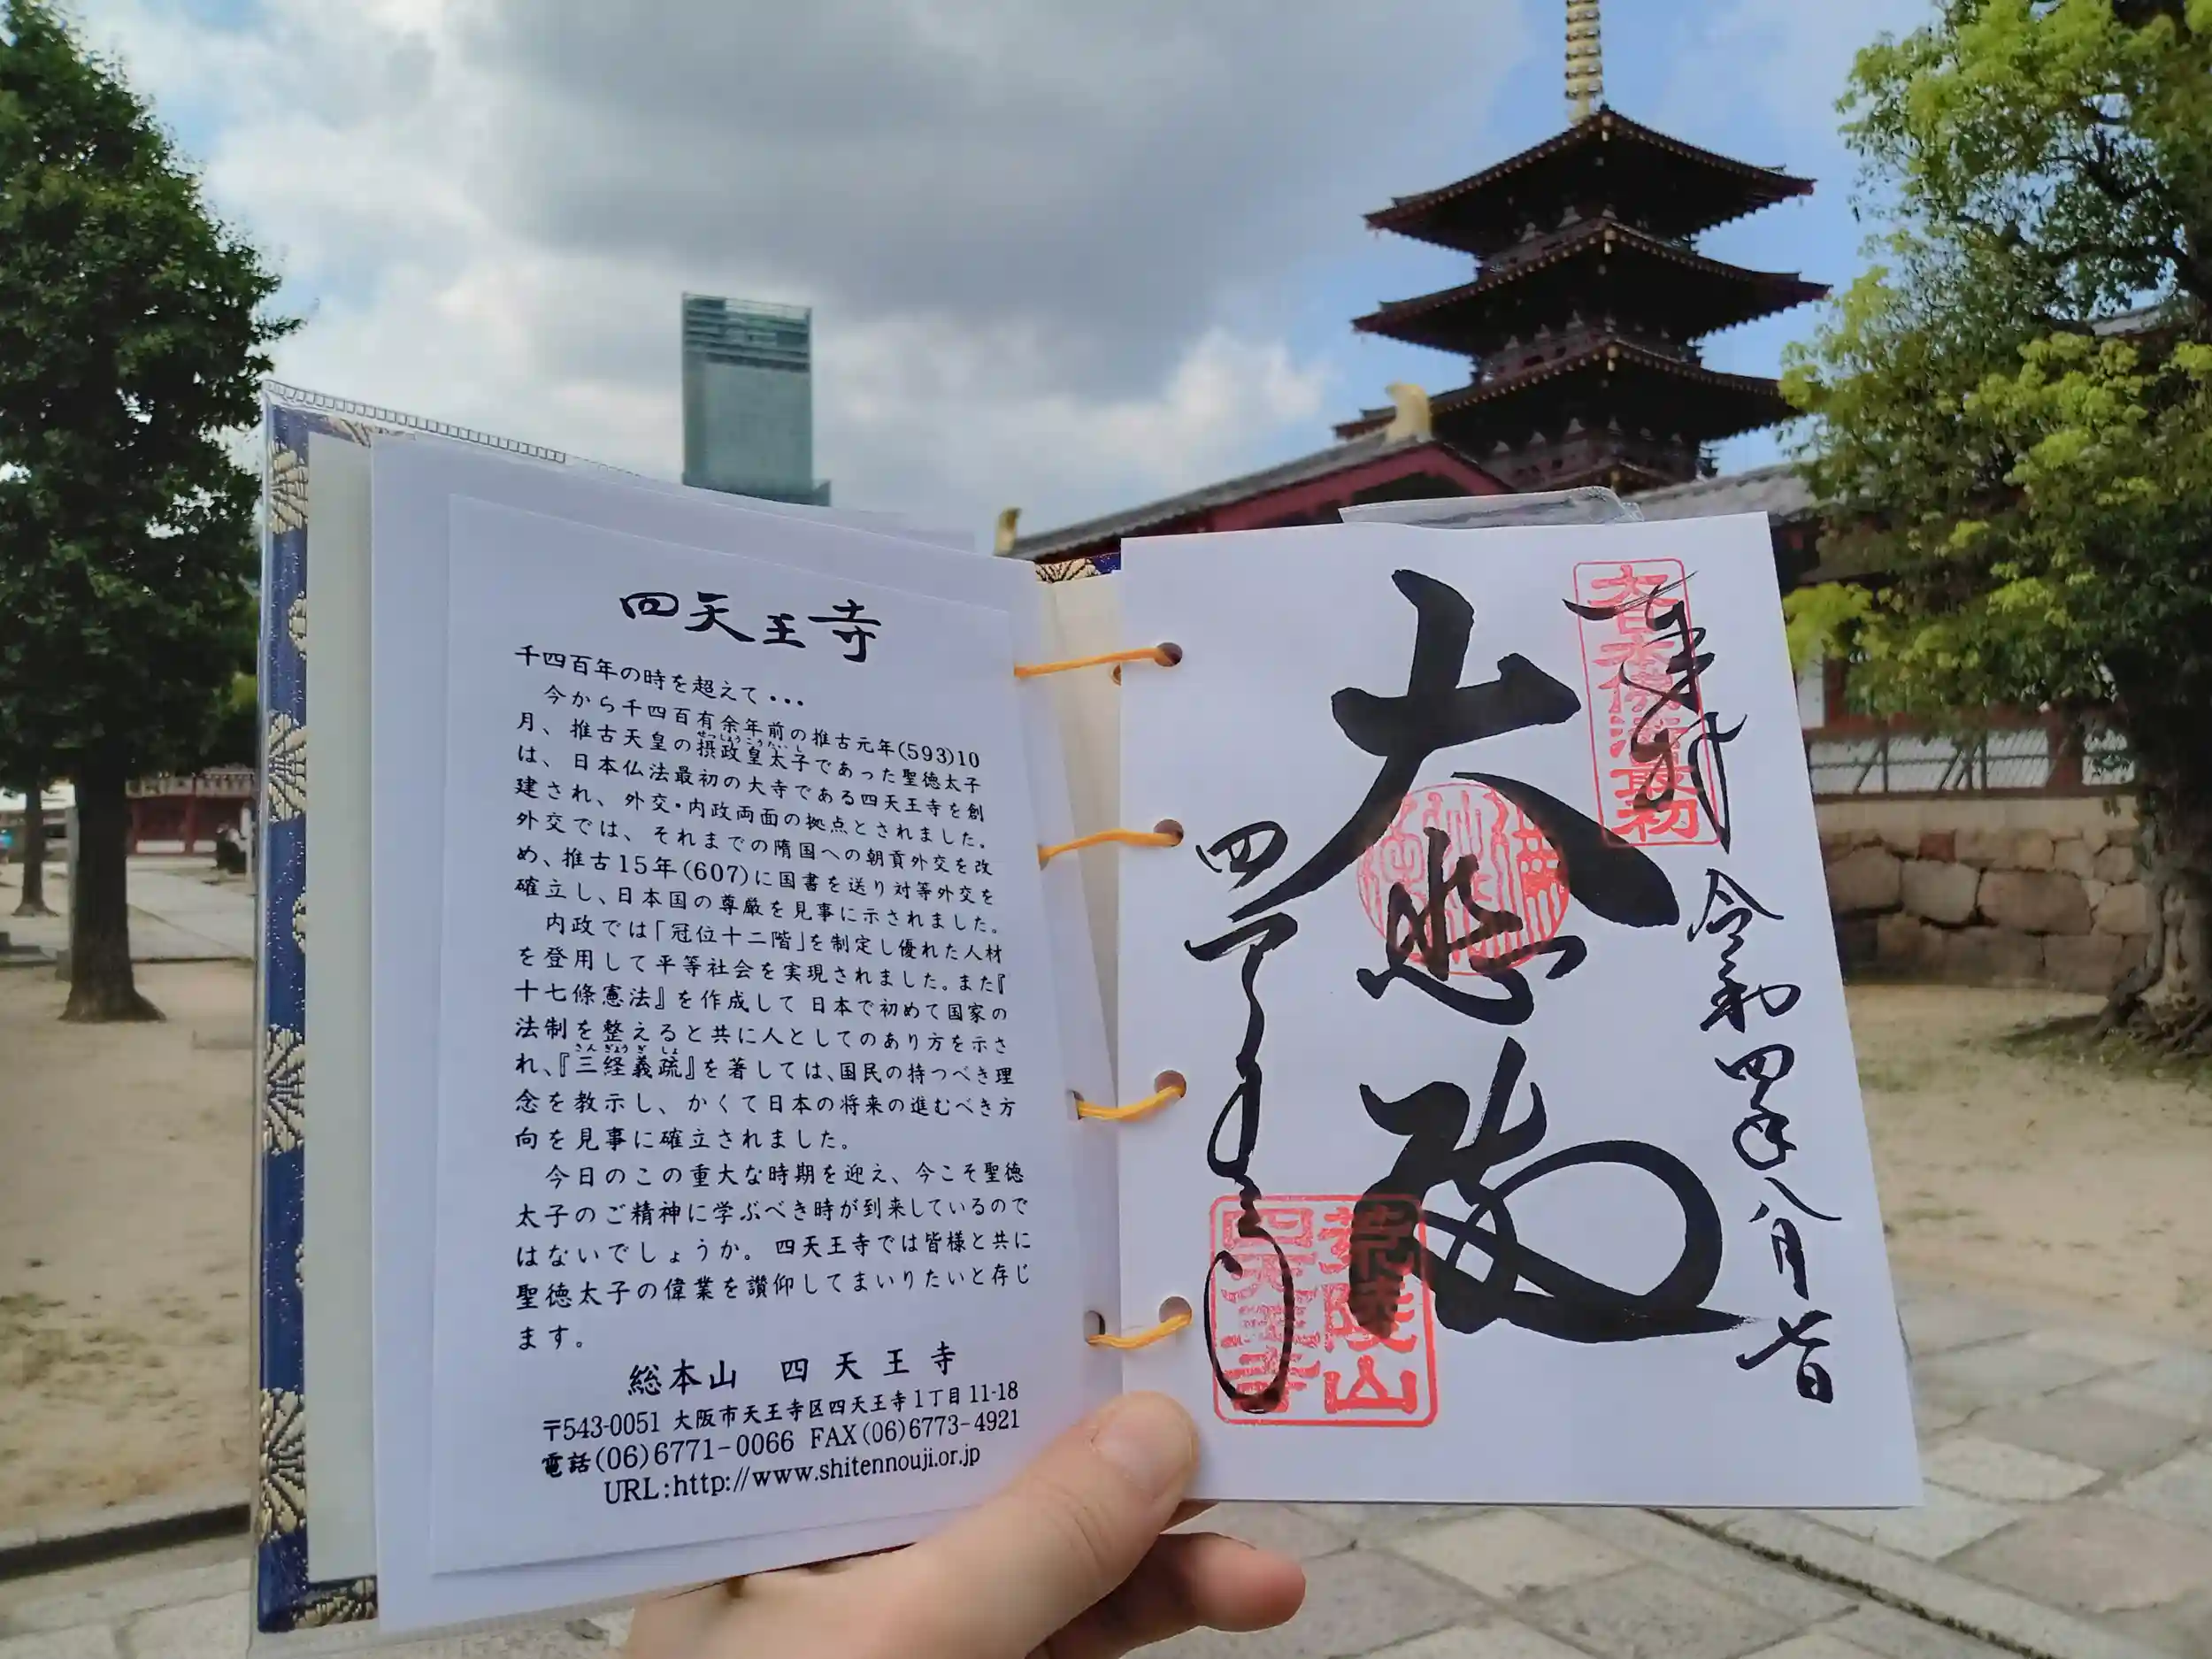 四天王寺
千四百年の時を超えて・・・
今から千四百有余年前の推古元年(593)10
月、推古天皇の摂政皇太子であった聖徳太子
せっしょうこうたいし
は、日本仏法最初の大寺である四天王寺を創
建され、外交・内政両面の拠点とされました。
外交では、それまでの隋国への朝貢外交を改
め、推古15年(607)に国書を送り対等外交を
確立し、日本国の尊厳を見事に示されました。
内政では「冠位十二階」を制定し優れた人材
を登用して平等社会を実現されました。また『
十七條憲法』を作成して日本で初めて国家の
法制を整えると共に人としてのあり方を示さ
さんぎょうぎしょ
れ、『三経義疏』を著しては、国民の持つべき理
念を教示し、かくて日本の将来の進むべき方
向を見事に確立されました。
今日のこの重大な時期を迎え、今こそ聖徳
太子のご精神に学ぶべき時が到来しているので
はないでしょうか。四天王寺では皆様と共に
聖徳太子の偉業を讃仰してまいりたいと存じ
ます。
総本山 四天王寺
〒543-0051 大阪市天王寺区四天王寺1丁目11-18
電話(06)6771-0066 FAX(06)6773-4921
URL:http://www.shitennouji.or.jp
奉拝
大日本佛法最初
令和四年八月七日
大悲殿
四天王寺
荒陵山
四天王寺